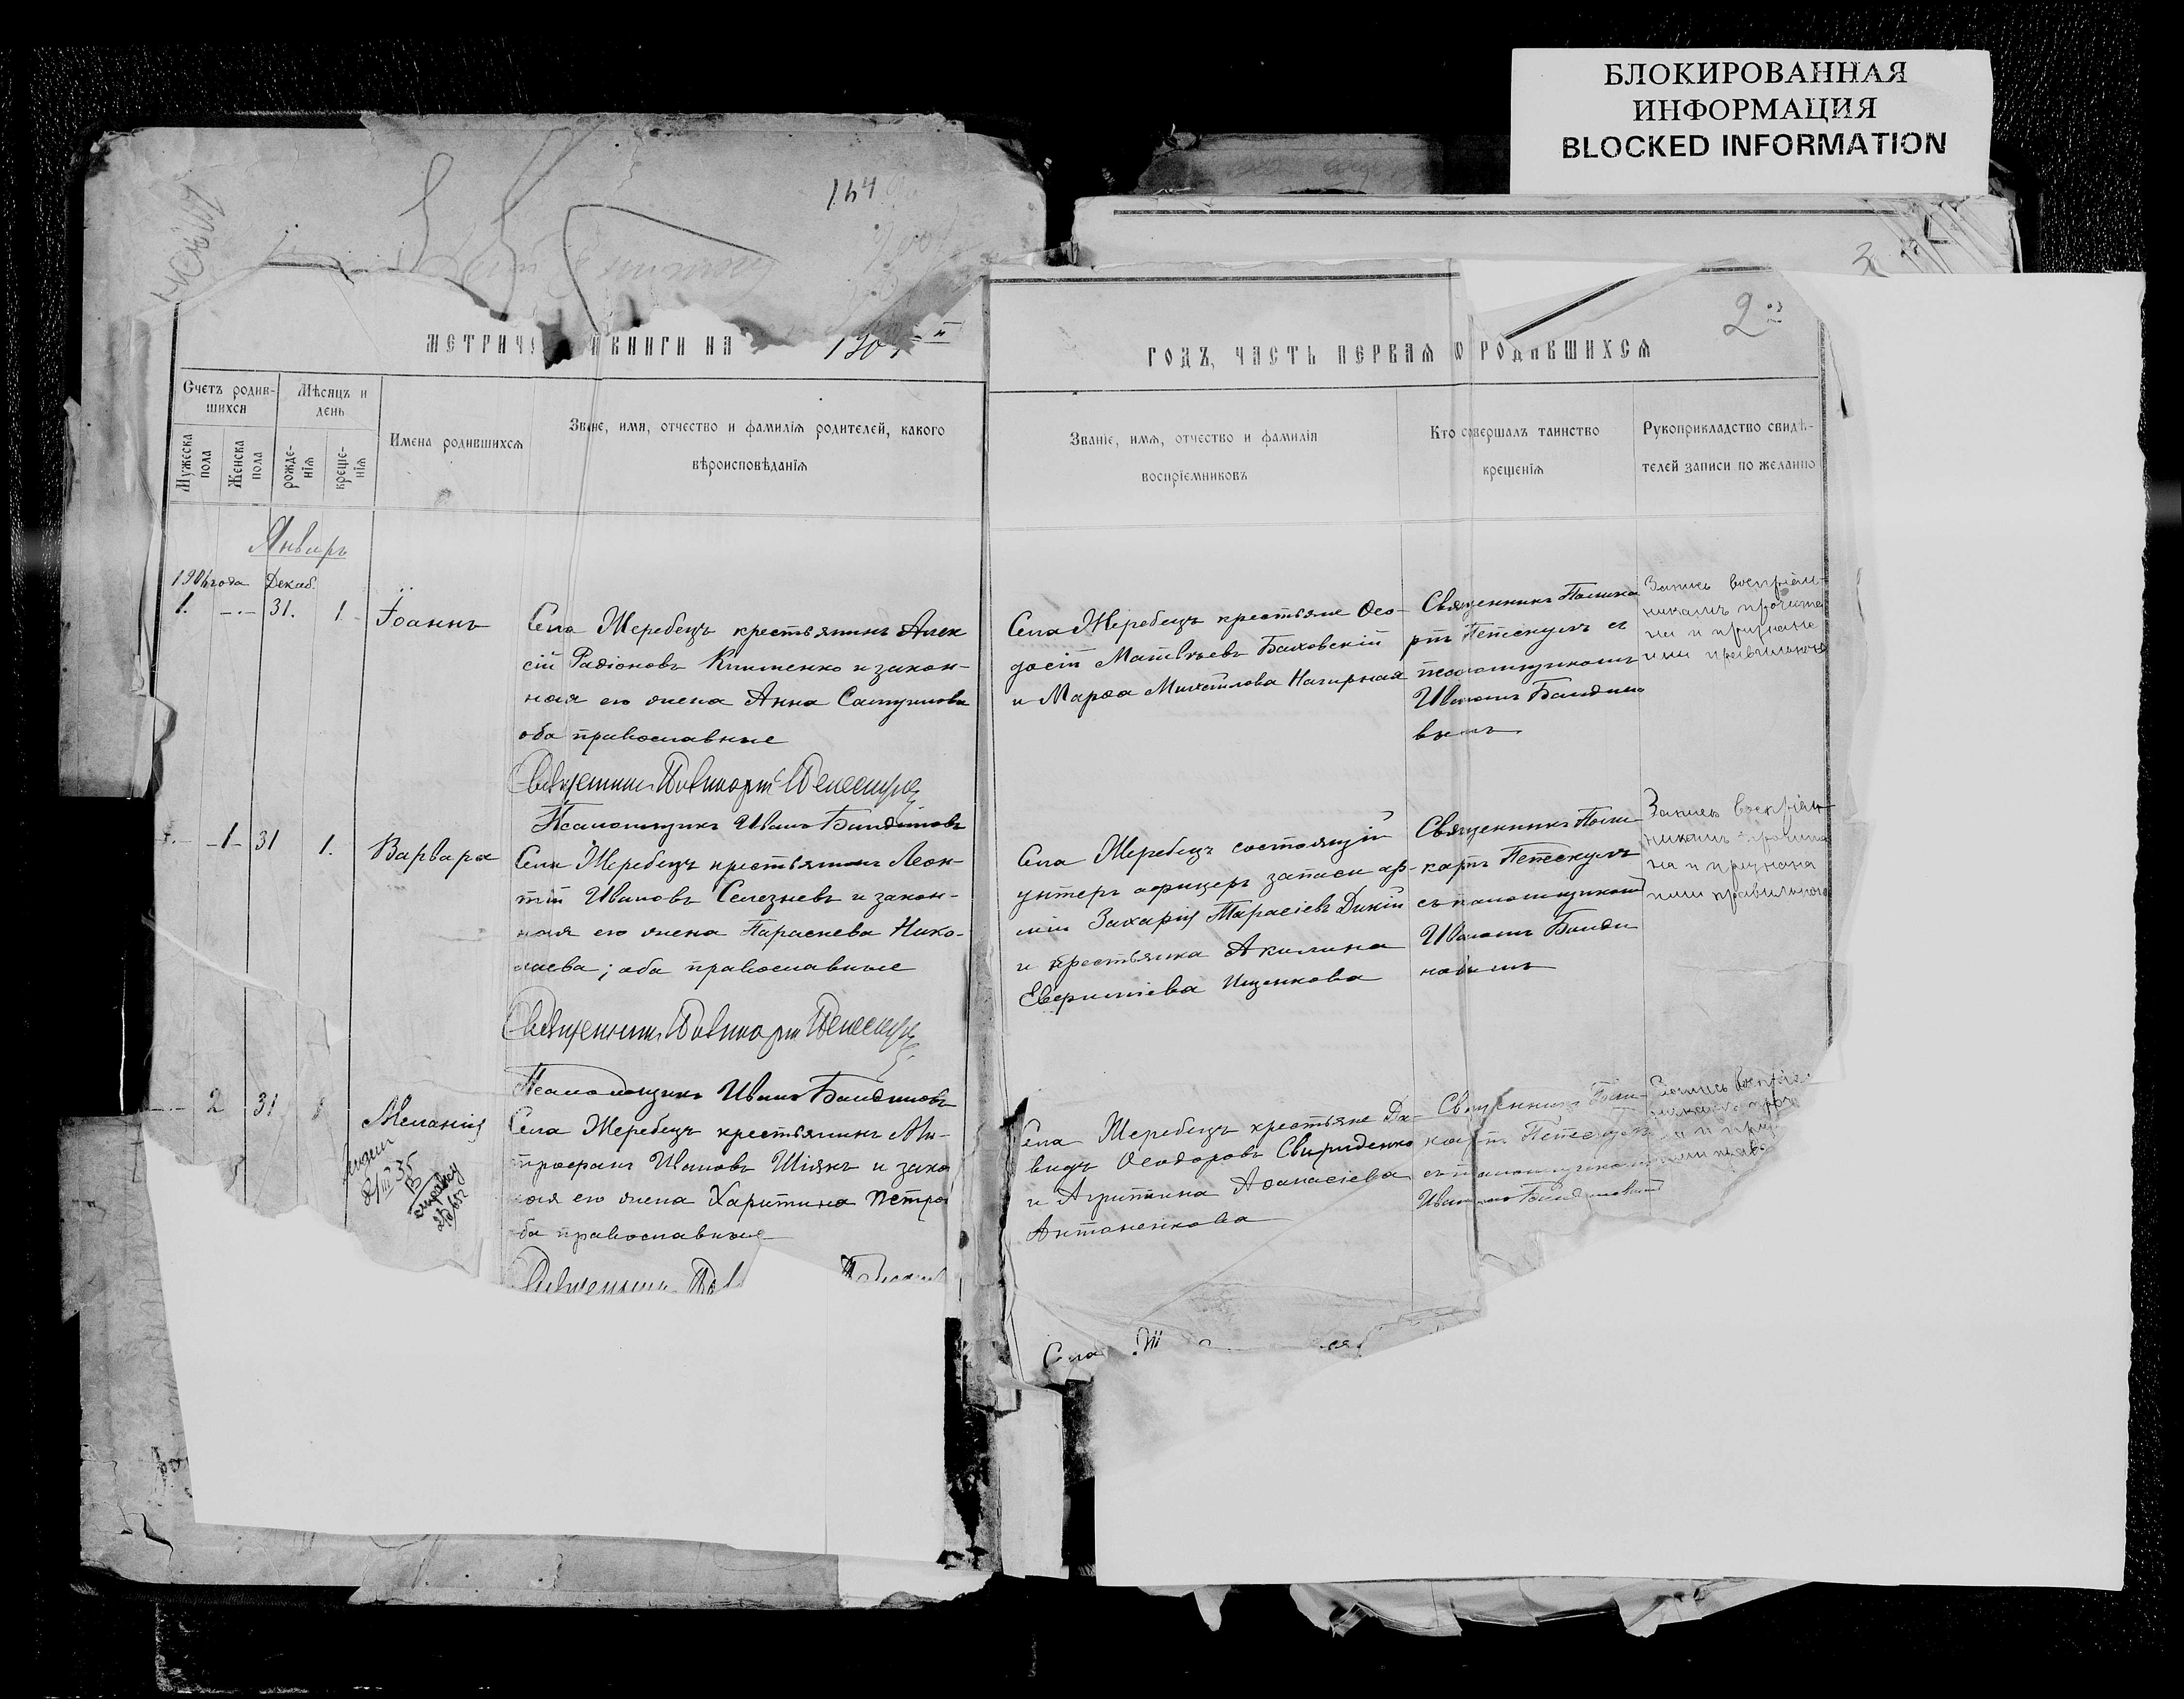 БЛОКИРОВАННАЯ
ИНФОРМАЦИЯ
BLOCKED INFORMATION
164
2
МЕТРИЧЕ КНИГИ НА 190
ГОДЪ, ЧАСТЬ ПЕРВАЯ О РОДИВШИХСЯ
Счетъ родив-
шихся
Мужеска
пола
Женска
пола
Мѣсяцъ и
день
рожде-
нія
креще-
нія
Имена родившихся
Званіе, имя, отчество и фамилія родителей, какого
вѣроисповѣданія
Званіе, имя, отчество и фамилія
воспріемниковъ
Кто совершалъ таинство
крещенія
Рукоприкладство свидѣ-
телей записи по желанію
Январь
1904 года Декаб.
1. -.- 31. 1
Іоаннъ
Села Жеребецъ крестьянинъ Алек
сій Радіоновъ Клименко и закон-
ная его жена Анна
оба православные
Священникъ
Псаломщикъ Иванъ Бандиновъ
Села Жеребецъ крестьяне Ѳео-
досій Матвѣевъ Баховскій
и Марѳа Михаилова Нагирная
Священникъ Полика
рпъ Петескулъ съ
псаломщикомъ
Иваномъ Бандино
вымъ
Запись воспріем-
никамъ прочита
на и признана
ими правильною
-1- 31 1.
Варвара
Села Жеребецъ крестьянинъ Леон-
тій Ивановъ Селезневъ и закон-
ная его жена Параскева Нико-
лаева; оба православные
Священникъ
Псаломщикъ Иванъ Бандиновъ
Села Жеребецъ состоящій
унтеръ офицеръ запаса ар-
міи Захарій Тарасіевъ Дикій
и крестьянка Акилина
Ищенкова
Священникъ Поли-
карпъ Петескулъ
съ псаломщикомъ
Иваномъ Банди
новымъ
Запись воспріем-
никамъ прочита
на и признана
ими правильною
2 31 1
Меланія
III 35
справку
Села Жеребецъ крестьянинъ Ми-
трофанъ Ивановъ Шіянъ и зако
ная его жена Харитина Петро
ба православные
Села Жеребецъ крестьяне Да-
видъ Ѳеодоровъ Свириденко
и Агрипина Аѳанасіева
Антоненкова
Священникъ Поли-
карпъ
съ псаломщикомъ
Иваномъ Бандиновымъ
Запись воспріе
Села